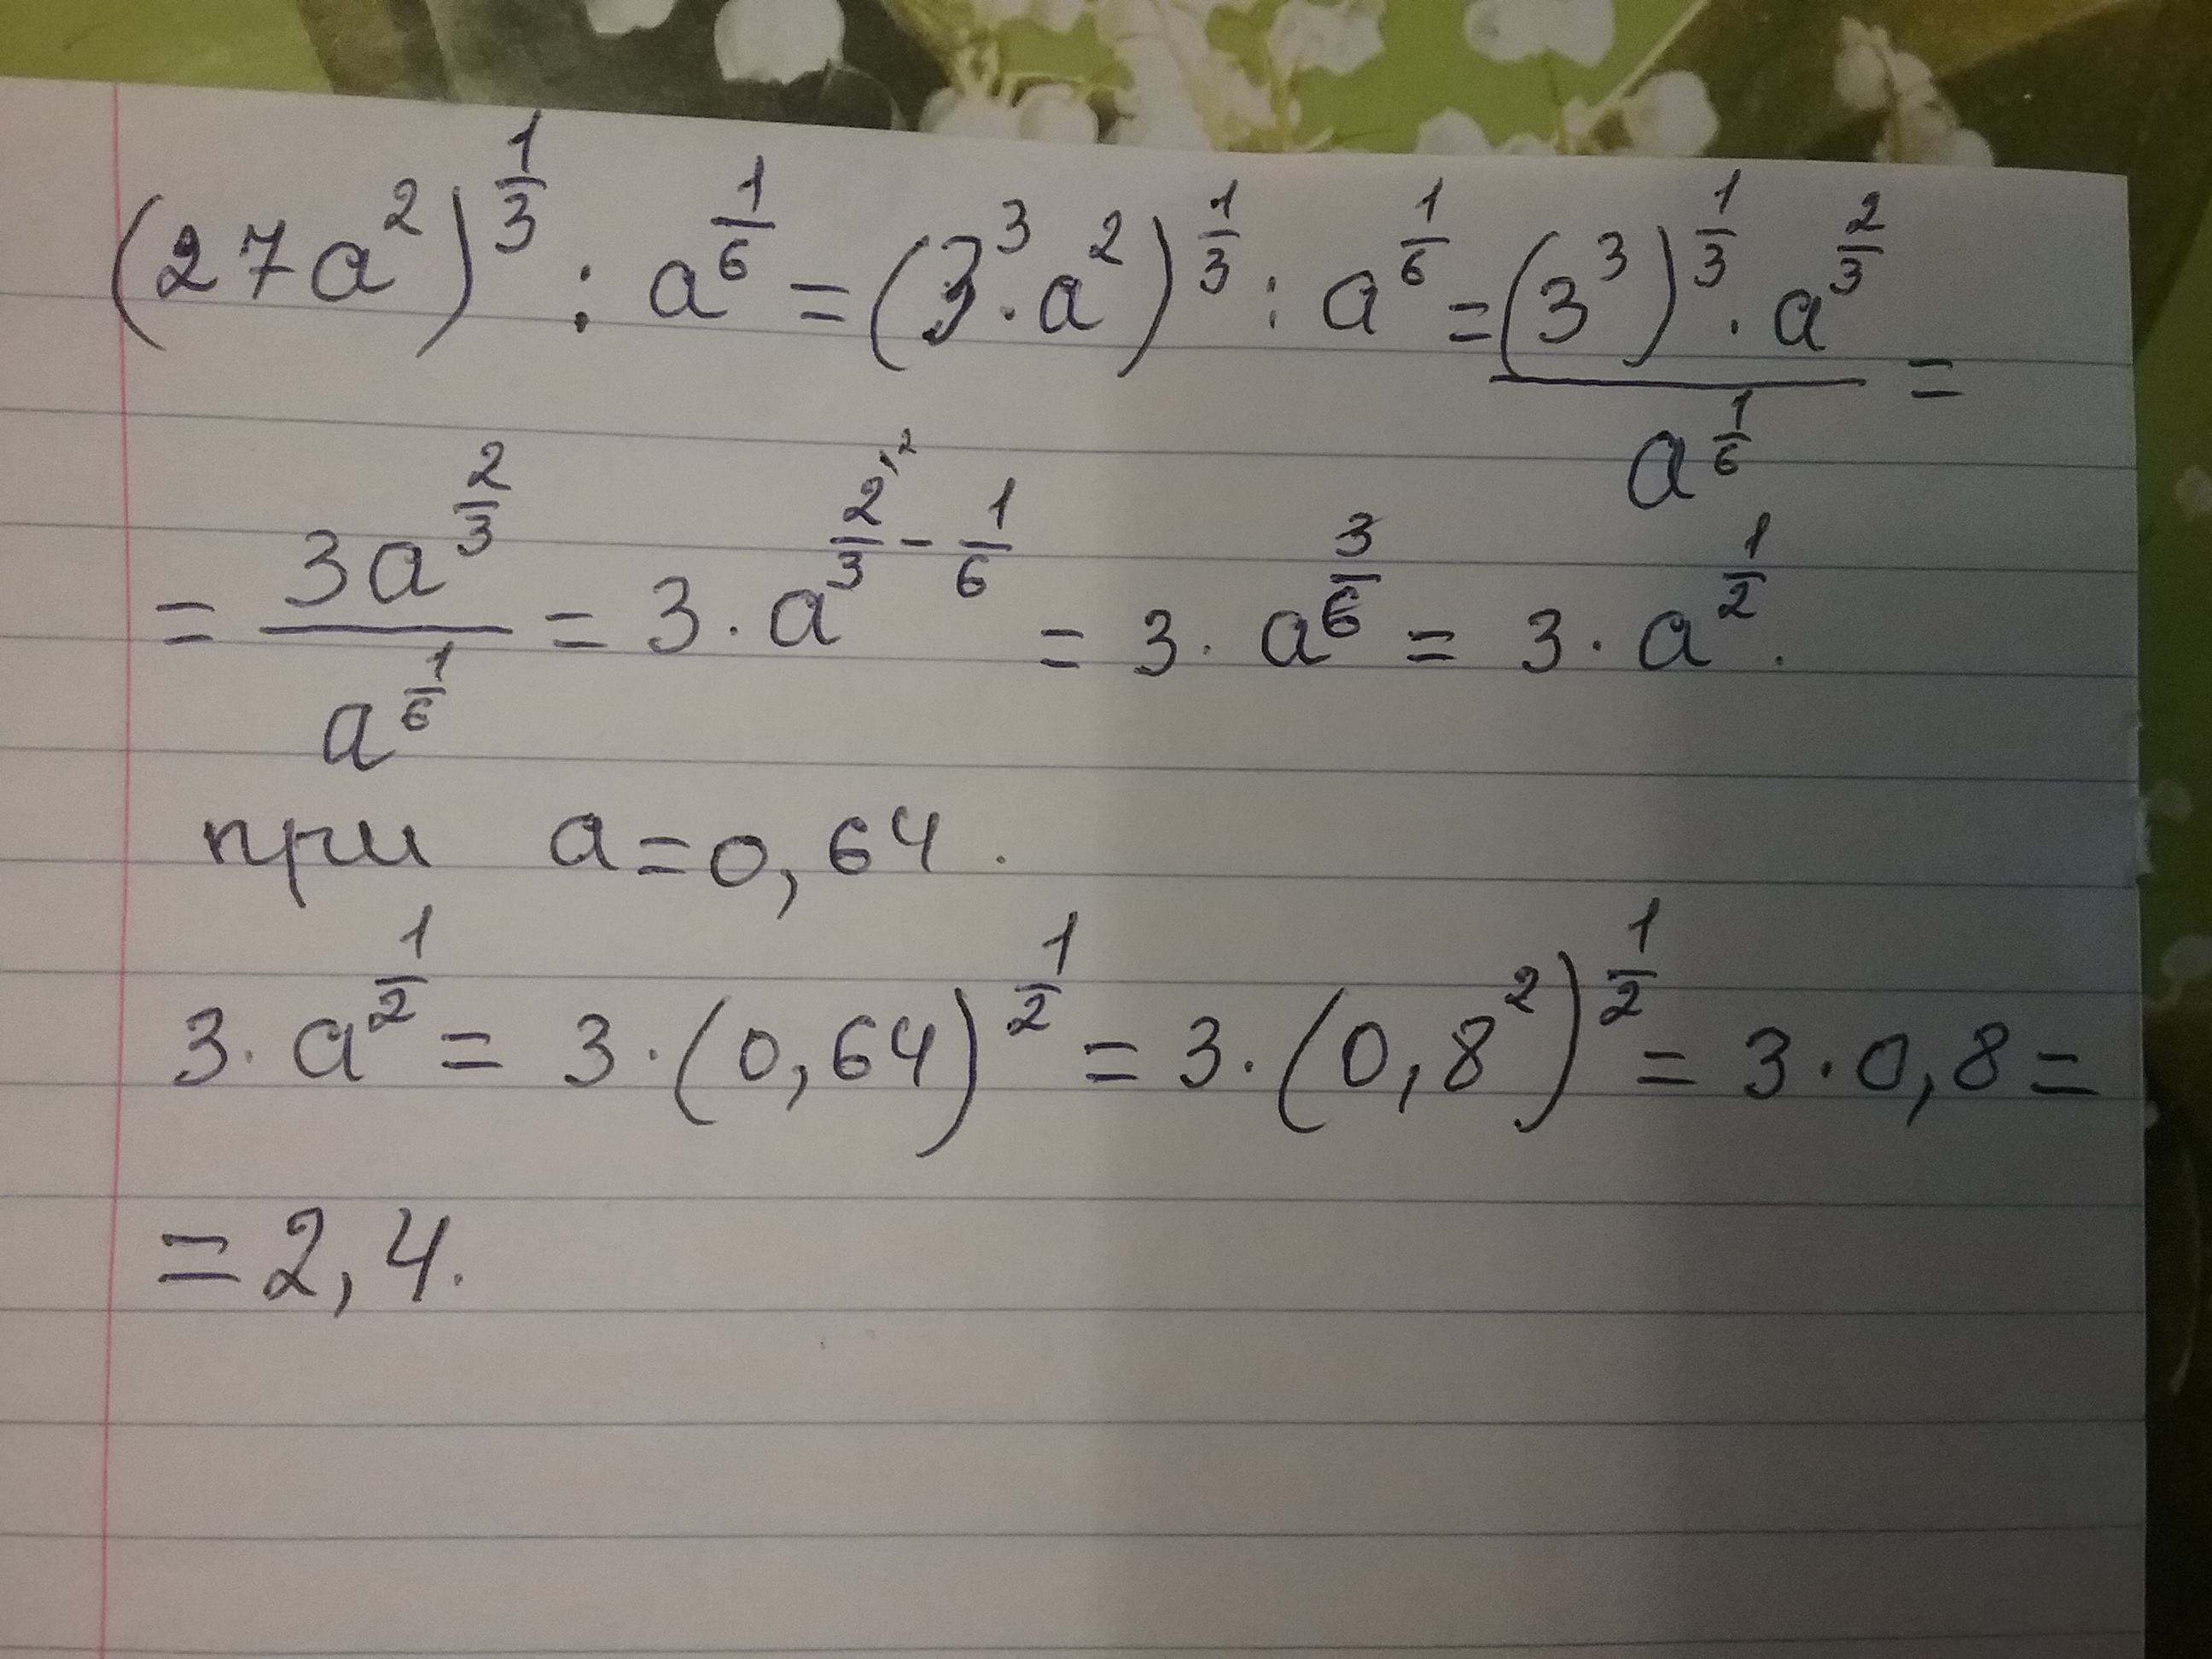 (27a²)^(1/3) : a^(1/6) = (3³·a²)^(1/3) : a^(1/6) = ((3³)^(1/3)·a^(2/3))/(a^(1/6)) =
= (3a^(2/3))/(a^(1/6)) = 3·a^(2\²/3 - 1/6) = 3·a^(3/6) = 3·a^(1/2).
при a=0,64.
3·a^(1/2) = 3·(0,64)^(1/2) = 3·(0,8²)^(1/2) = 3·0,8=
=2,4.